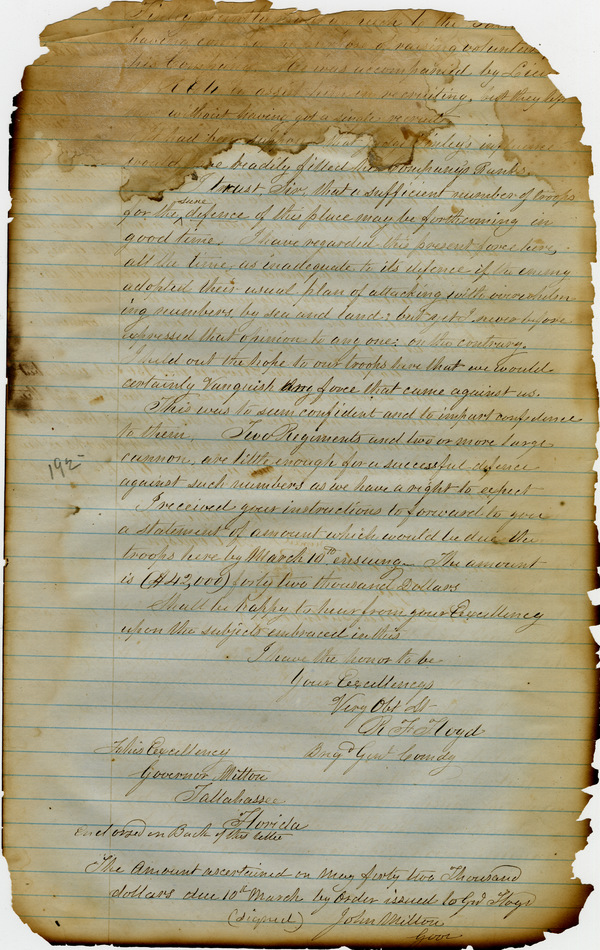 having
of raising volunteers
his Company. He was accompanied by Lieu
to assist him in recruiting, but they
without having got a single recruit
had
would readily filled his Company's Ranks.
I trust Sir, that a sufficient number of troops
sure
for the defence of this place may be forthcoming in
good time. I have regarded the present force here,
all the time, as inadequate to its defence if the enemy
adopted their usual plan of attacking with overwhelm
ing numbers by sea and land; but yet I never before
expressed that opinion to any one; on the contrary.
I held out the hope to our troops here that we would
certainly vanquish any force that came against us.
This was to seem confident and to impart confidence
to them. Two Regiments and two or more large
cannon, are little enough for a successful defence
against such numbers as we have a right to expect
I received your instructions to forward to you
a statement of amount which would be due the
troops here by March 10th ensuing. The amount
is ($42,000) forty two thousand Dollars
Shall be happy to hear from your Excellency
upon the subjects embraced in this
I have the honor to be
Your Excellencys
Very Obt St
R F Floyd
Brigd Genl Comdg
To His Excellency
Governor Milton
Tallahassee
Florida
192
Endorsed on Back of this letter
The Amount ascertained on may forty two Thousand
dollars due 10th March by order issued to Gnl Floyd
(signed) John Milton
Govr